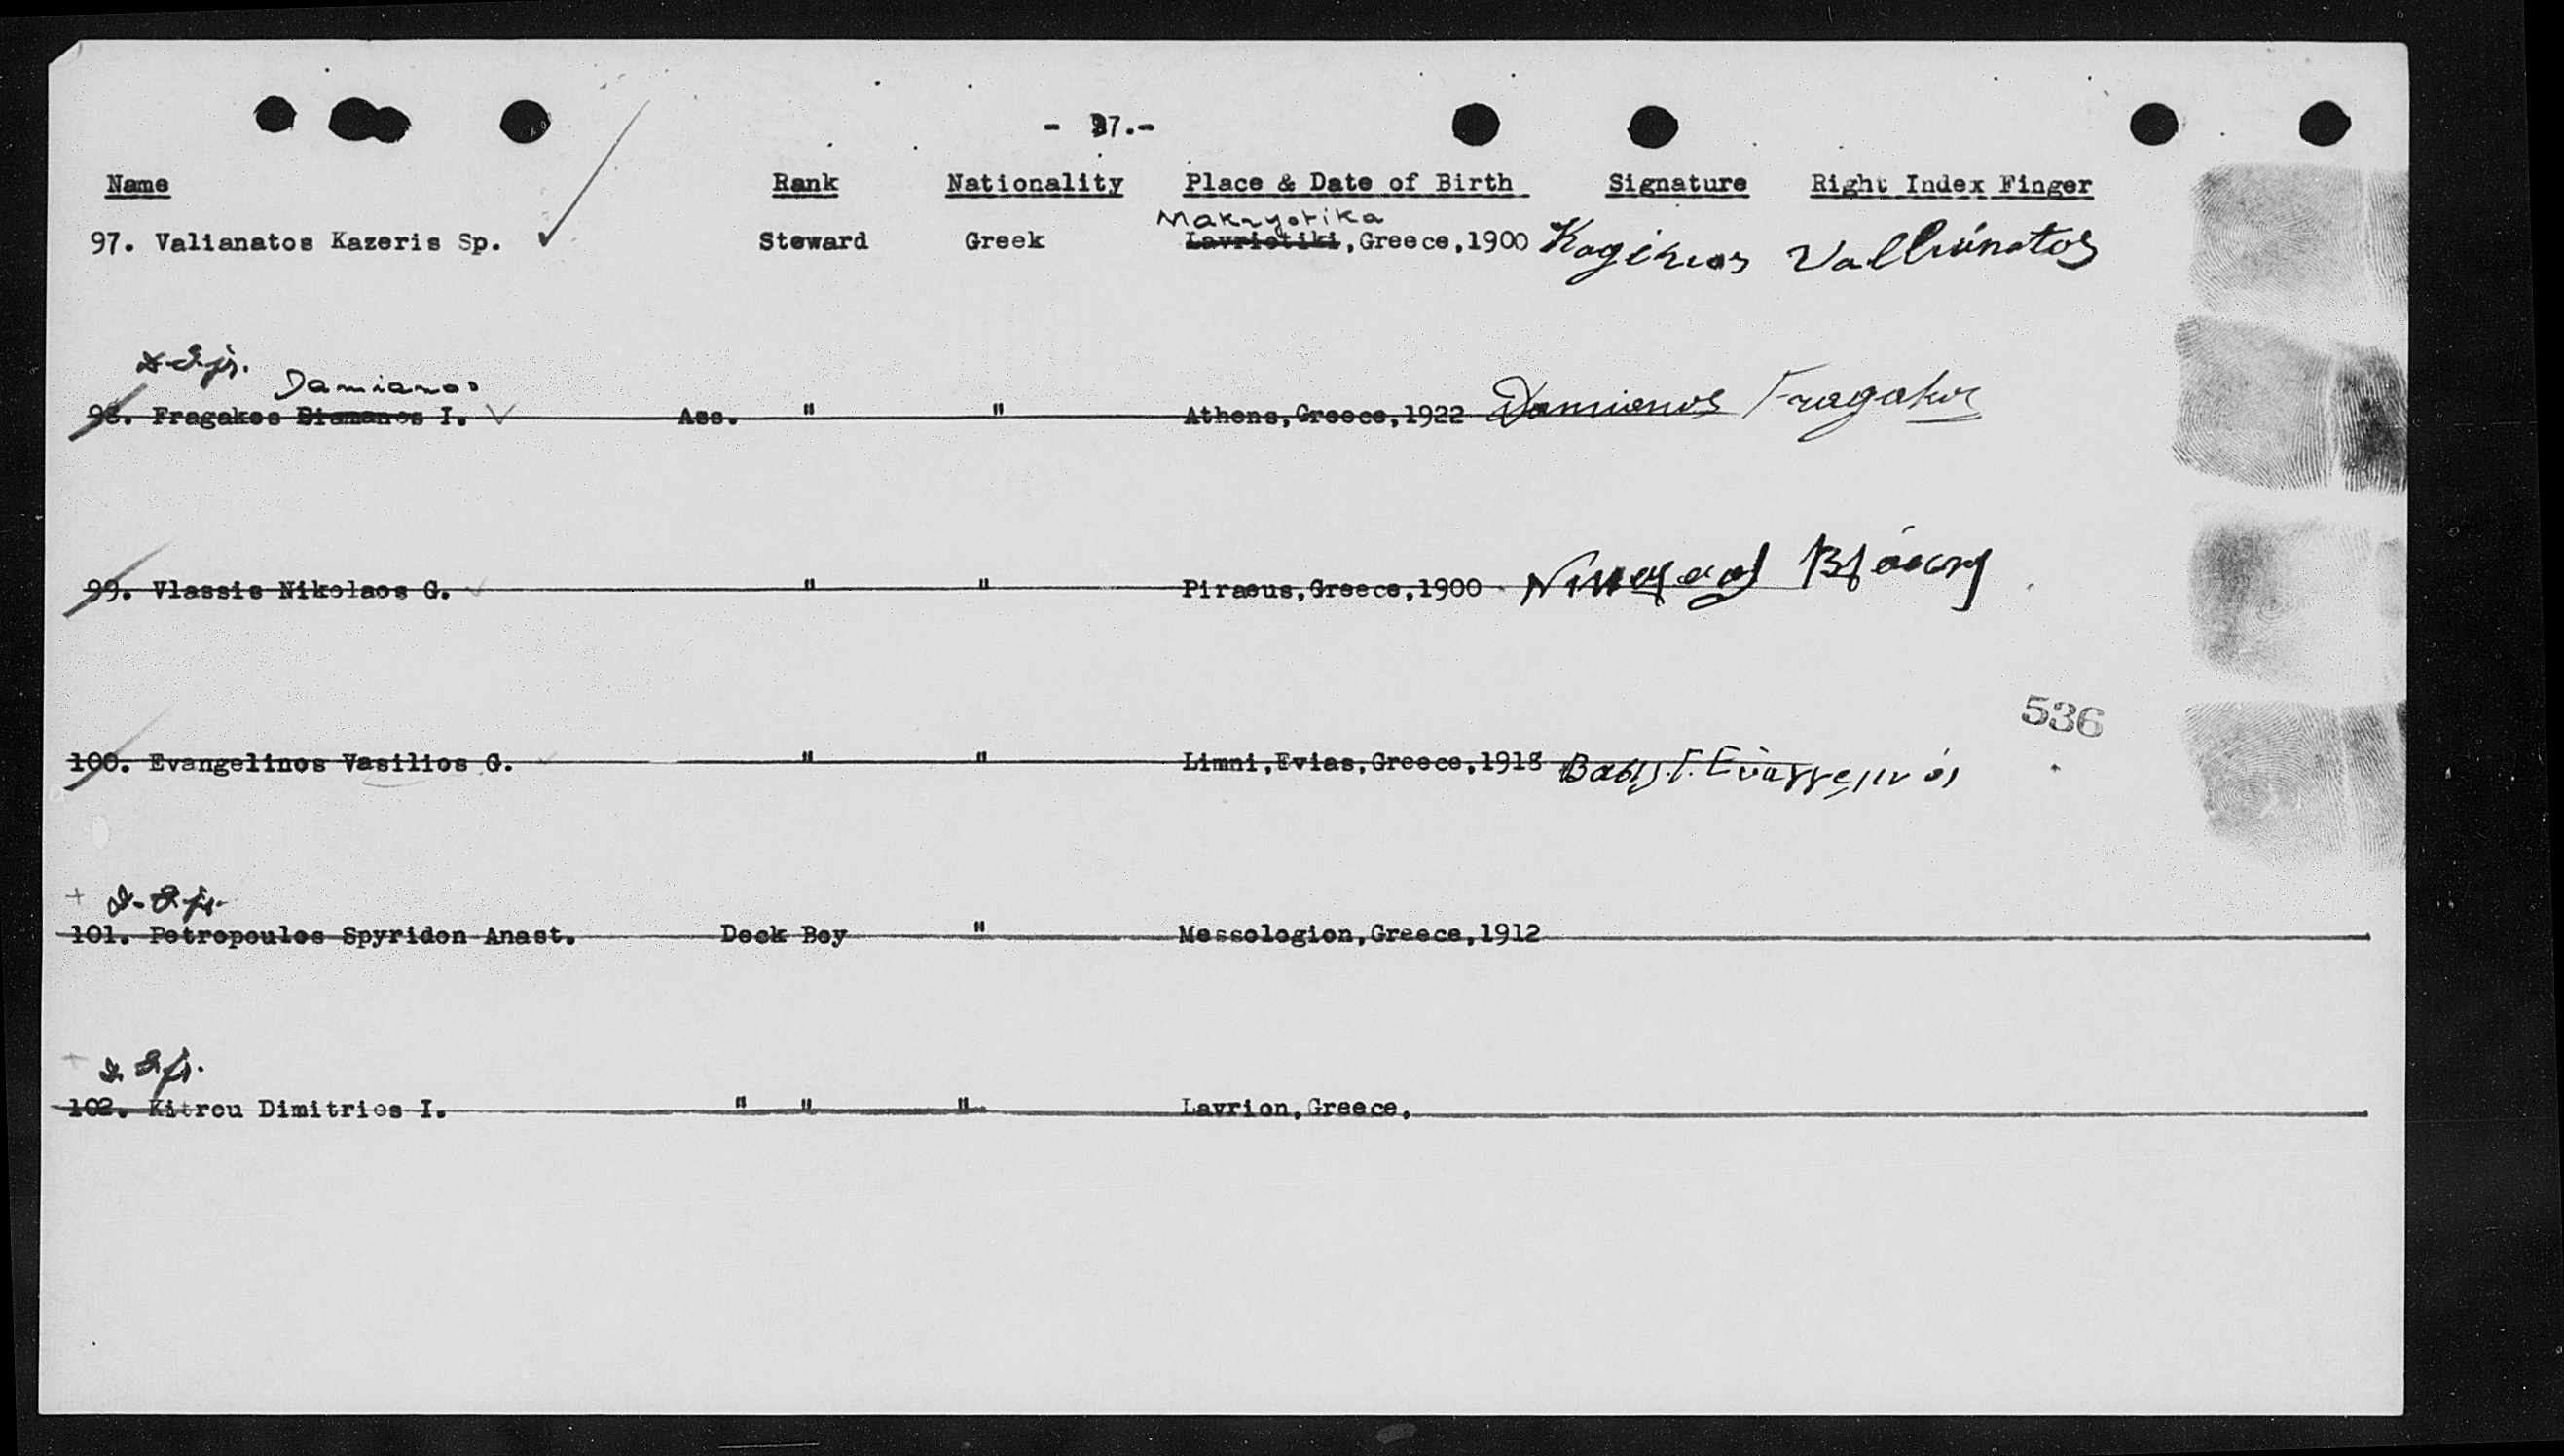 - 37.-
Name Rank Nationality Place & Date of Birth Signature Right Index Finger
Makryotika
97. Valianatos Kazeris Sp. Steward Greek Lavriotiki, Greece, 1900 Vallianatos
Damianos
98. Fragakos Diamanos I. Ass. " " Athens, Greece, 1922 Damianos Fragakos
99. Vlassis Nikolaos G. " " Piraeus, Greece, 1900 Νικολαος Βλάσης
536
100. Evangelinos Vasilios G. " " Limni, Evias, Greece, 1918 Βασιλ. Γ. Εὐαγγελινός
101. Petropoulos Spyridon Anast. Deck Boy " Messologion, Greece, 1912
102. Kitrou Dimitrios I. " " " Lavrion, Greece.